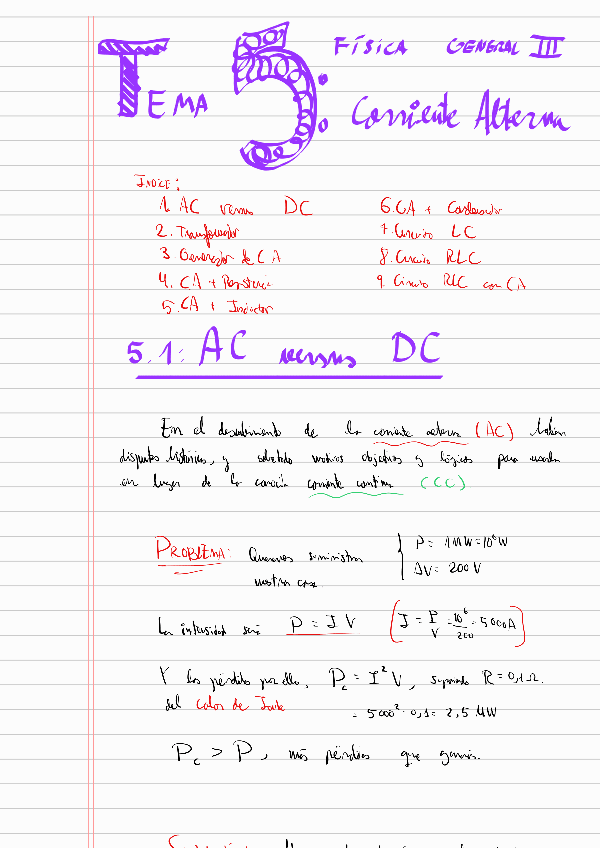 FÍSICA GENERAL III
TEMA 5: Corriente Alterna
ÍNDICE:
1. AC versus DC
2. Transformador
3 Generador de CA
4. CA + Resistencia
5. CA + Inductor
6. CA + Condensador
7. Circuito LC
8. Circuito RLC
9. Circuito RLC con CA
5.1: AC versus DC
En el descubrimiento de la corriente alterna (AC) habían
disputas históricas, y sobretodo motivos objetivos y lógicos para usarla
en lugar de la corriente continua (CC)
PROBLEMA: Queremos suministrar
nuestra casa
P = 1 MW = 10⁶ W
ΔV = 200 V
La intensidad será P = I V (I = P/V = 10⁶/200 = 5000A)
Y las pérdidas por ello, P_c = I² V, suponiendo R = 0,1 Ω.
del calor de Joule = 5000² · 0,1 = 2,5 MW
P_c > P, más pérdidas que ganancias.